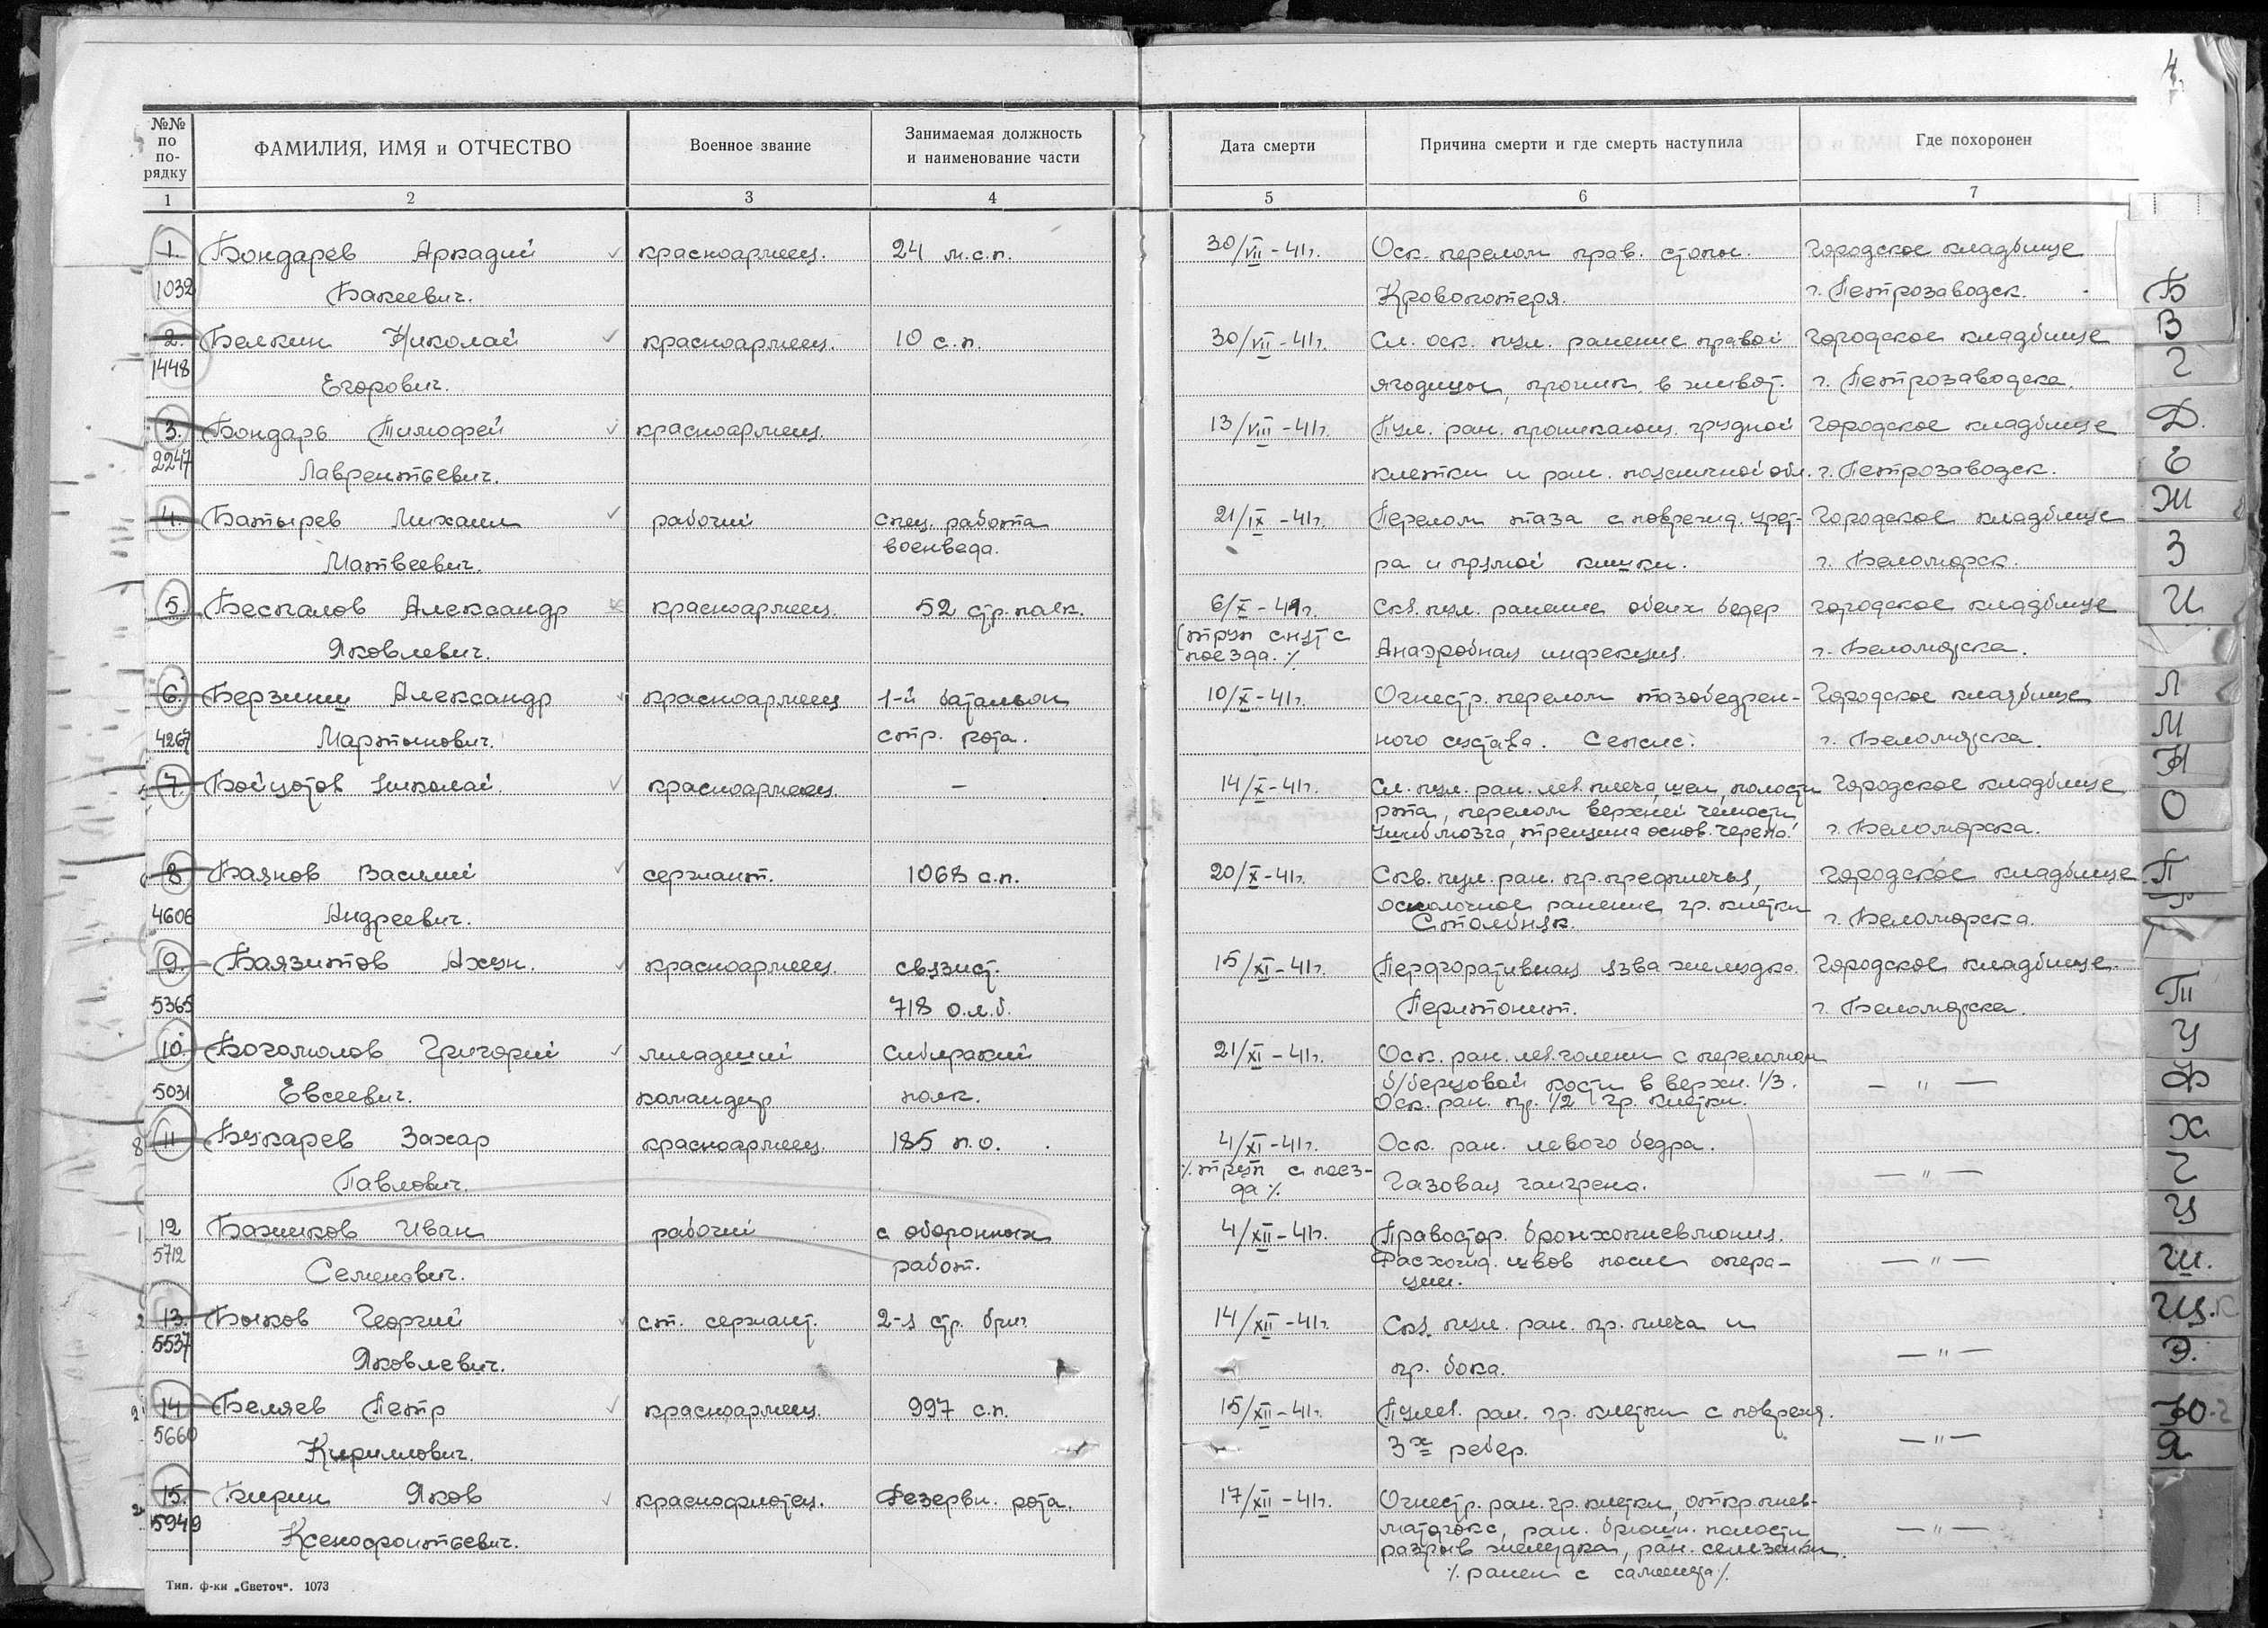 4
№№ по по-рядку
ФАМИЛИЯ, ИМЯ и ОТЧЕСТВО
Военное звание
Занимаемая должность и наименование части
Дата смерти
Причина смерти и где смерть наступила
Где похоронен
1 2 3 4 5 6 7
1. Бондарев Аркадий красноармеец. 24 м.с.п. 30/VII-41г. Оск. перелом прав. стопы. Городское кладбище
1032 Бакеевич. Кровопотеря. г. Петрозаводск.
2. Белкин Николай красноармеец. 10 с.п. 30/VII-41г. Сл. оск. пул. ранение правой Городское кладбище
1448 Егорович. ягодицы, проник. в живот. г. Петрозаводска.
3. Бондарь Тимофей красноармеец. 13/VIII-41г. Пул. ран. проникающ. грудной Городское кладбище
2247 Лаврентьевич. клетки и ран. поясничной обл. г. Петрозаводск.
4. Батырев Михаил рабочий спец. работа 21/IX-41г. Перелом таза с поврежд. урет- Городское кладбище
военведа.
Матвеевич. ра и прямой кишки. г. Беломорск.
5. Беспалов Александр красноармеец. 52 стр. полк. 6/X-41г. Скв. пул. ранение обеих бедер Городское кладбище
(труп снят с
Яковлевич. поезда. % Анаэробная инфекция. г. Беломорска.
6. Берзиш Александр красноармеец 1-й батальон 10/X-41г. Огнестр. перелом тазобедрен- Городское кладбище
4267 Мартынович. стр. рота. ного сустава. Сепсис. г. Беломорска.
7. Бойцотов Николай. красноармеец – 14/X-41г. Сл. пул. ран. лев. плеча, шеи, полости Городское кладбище
рта, перелом верхней челюсти
ушиб мозга, трещина основ. черепа. г. Беломорска.
8 Баянов Василий сержант. 1068 с.п. 20/X-41г. Скв. пул. ран. пр. предплечья, Городское кладбище
4606 Андреевич. осколочное ранение гр. клетки
Столбняк. г. Беломорска.
9. Баязитов Ахун. красноармеец. связист. 15/XI-41г. Перфоративная язва желудка. Городское кладбище.
5365 718 о.л.б. Перитонит. г. Беломорска.
10. Богомолов Григорий младший Сибирский 21/XI-41г. Оск. ран. лев. голени с переломом
5031 Евсеевич. командир полк. б/берцовой кости в верхн. 1/3. — " —
Оск. ран. пр. 1/2 гр. клетки.
8 11 Букарев Захар красноармеец. 185 п.о. 4/XI-41г. Оск. ран. левого бедра.
% труп с поез-
Павлович. да % Газовая гангрена. — " —
1 12 Бажиков Иван рабочий с оборонных 4/XII-41г. Правостор. бронхопневмония.
5712 Семенович. работ. Расхожд. швов после опера- — " —
ции.
2 13. Быков Георгий ст. сержант. 2-я стр. бриг. 14/XII-41г. Скв. пул. ран. пр. плеча и
5537 Яковлевич. пр. бока. — " —
2 14 Беляев Петр красноармеец. 997 с.п. 15/XII-41г. Пулев. ран. гр. клетки с повреж.
5660 Кириллович. 3х ребер. — " —
2 15. Бирин Яков краснофлотец. Резервн. рота. 17/XII-41г. Огнестр. ран. гр. клетки, откр. пнев-
5949 Ксенофонтьевич. маторакс, ран. брюшн. полости — " —
разрыв желудка, ран. селезенки.
% ранен с самолета %
Тип. ф-ки „Светоч". 1073
Б
В
Г
Д.
Е
Ж
З
И
Л
М
Н
О
П
Т
У
Ф
Х
Ч
Ц
Ш.
Щ.
Э.
Ю
Я